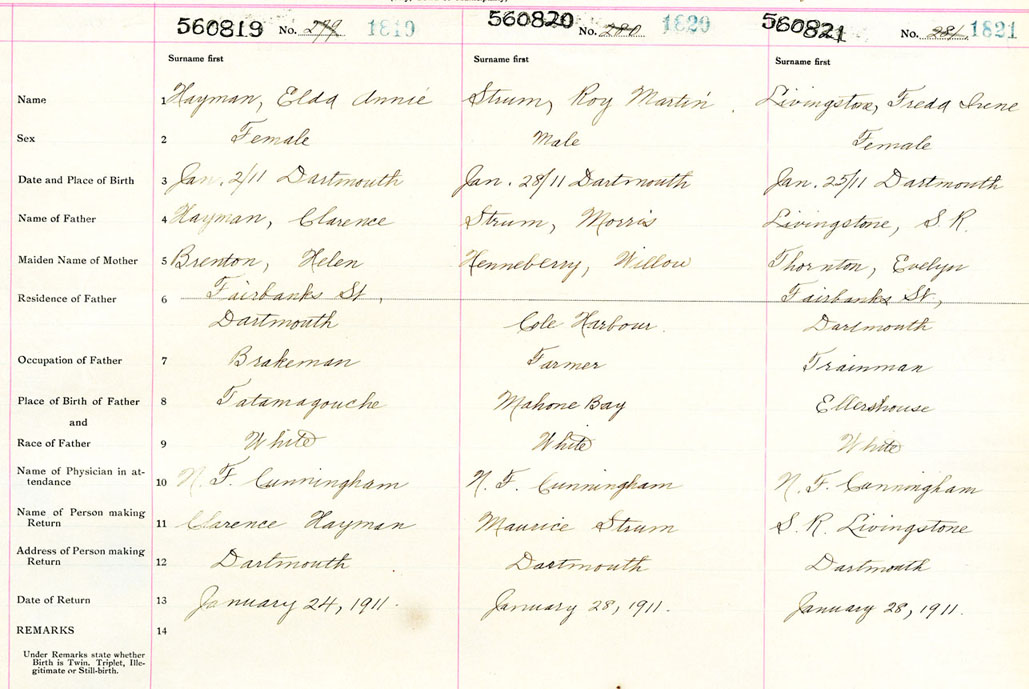 560819 No. 279 1819 560820 No. 280 1820 560821 No. 281 1821
Surname first Surname first Surname first
Name 1 Hayman, Elda Annie Strum, Roy Martin Livingstone, Freda Irene
Sex 2 Female Male Female
Date and Place of Birth 3 Jan. 2/11 Dartmouth Jan. 28/11 Dartmouth Jan. 25/11 Dartmouth
Name of Father 4 Hayman, Clarence Strum, Morris Livingstone, S. R.
Maiden Name of Mother 5 Brenton, Helen Henneberry, Willow Thornton, Evelyn
Residence of Father 6 Fairbanks St, Fairbanks St,
Dartmouth Cole Harbour. Dartmouth
Occupation of Father 7 Brakeman Farmer Trainman
Place of Birth of Father 8 Tatamagouche Mahone Bay Ellershouse
and
Race of Father 9 White White White
Name of Physician in at-
tendance 10 N. F. Cunningham N. F. Cunningham N. F. Cunningham
Name of Person making
Return 11 Clarence Hayman Maurice Strum S. R. Livingstone
Address of Person making
Return 12 Dartmouth Dartmouth Dartmouth
Date of Return 13 January 24, 1911. January 28, 1911. January 28, 1911.
REMARKS 14
Under Remarks state whether
Birth is Twin. Triplet, Ille-
gitimate or Still-birth.